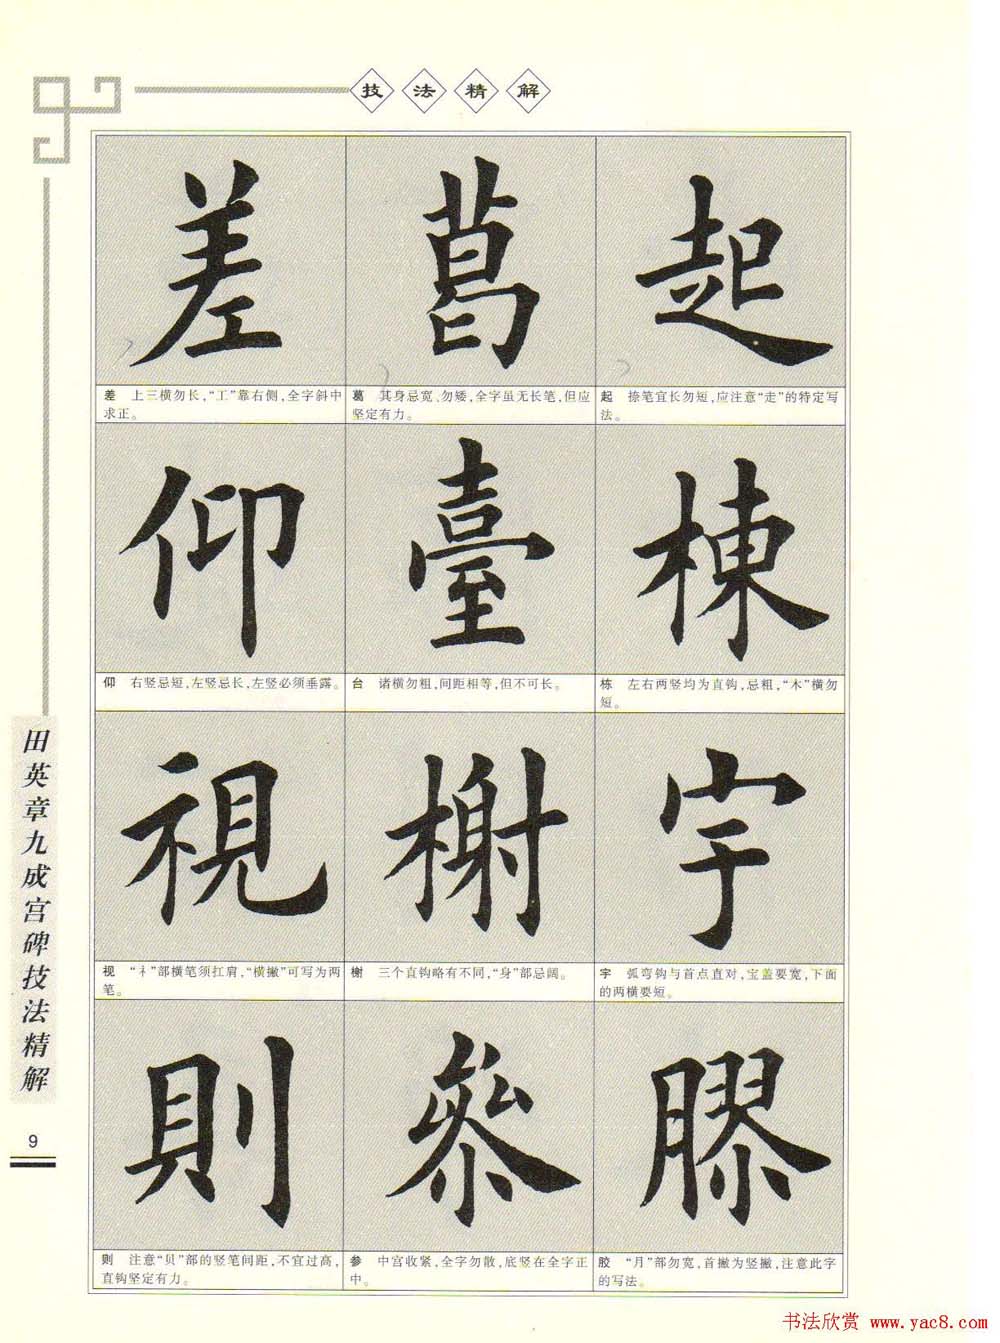 技法精解
差
葛
起
差 上三横勿长,“工”靠右侧,全字斜中
求正。
葛 其身忌宽、勿矮,全字虽无长笔,但应
坚定有力。
起 捺笔宜长勿短,应注意“走”的特定写
法。
仰
臺
棟
仰 右竖忌短,左竖忌长,左竖必须垂露。
台 诸横勿粗,间距相等,但不可长。
栋 左右两竖均为直钩,忌粗,“木”横勿
短。
視
榭
宇
视 “礻”部横笔须扛肩,“横撇”可写为两
笔。
榭 三个直钩略有不同,“身”部忌阔。
宇 弧弯钩与首点直对,宝盖要宽,下面
的两横要短。
則
參
膠
则 注意“贝”部的竖笔间距,不宜过高,
直钩坚定有力。
参 中宫收紧,全字勿散,底竖在全字正
中。
胶 “月”部勿宽,首撇为竖撇,注意此字
的写法。
田英章九成宫碑技法精解
9
书法欣赏 www.yac8.com